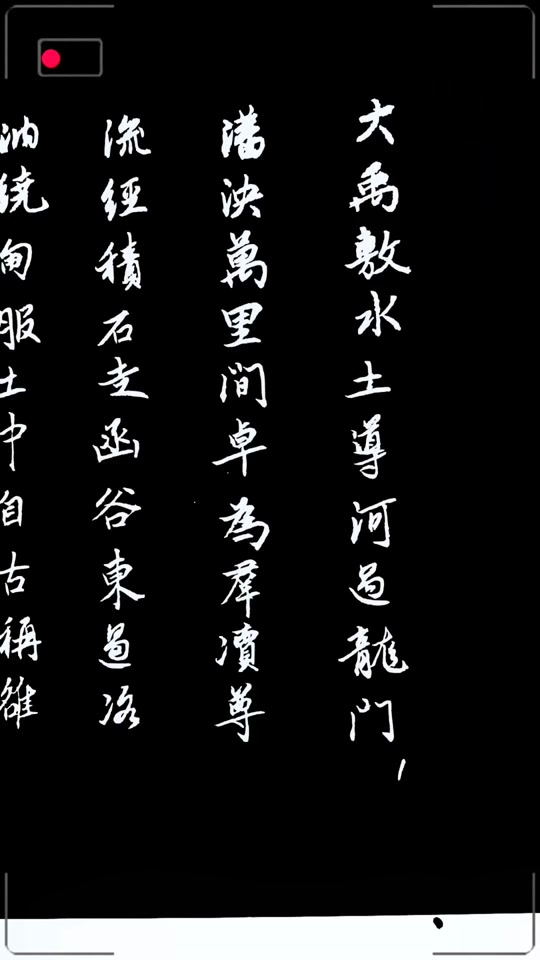 大禹敷水土導河過龍門
泱萬里間卓為羣瀆尊
流經積石走函谷東過洛
汭繞甸服土中自古稱雒